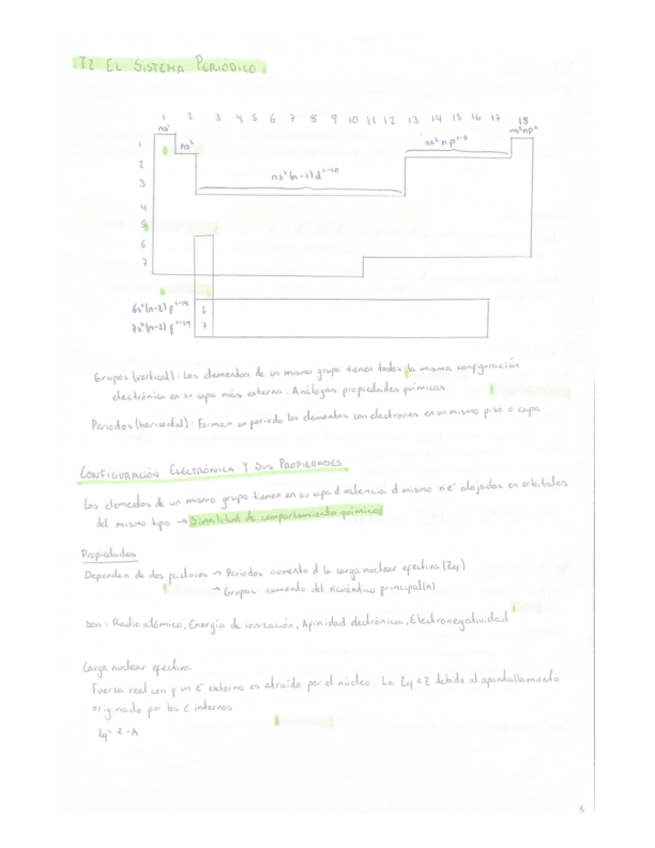 T2 EL SISTEMA PERIÓDICO.
1 2 3 4 5 6 7 8 9 10 11 12 13 14 15 16 17 18
ns¹ ns² ns²np¹⁻⁵
ns²(n-1)d¹⁻¹⁰
1
2
3
4
5
6
7
6s²(n-2)f¹⁻¹⁴ 6
7s²(n-2)f¹⁻¹⁴ 7
Grupos (vertical): Los elementos de un mismo grupo tienen todos la misma configuración
electrónica en su capa más externa. Análogas propiedades químicas
Periodos (horizontal): Forman un periodo los elementos con electrones en un mismo piso o capa
CONFIGURACIÓN ELECTRÓNICA Y SUS PROPIEDADES
Los elementos de un mismo grupo tienen en su capa d valencia el mismo nºe⁻ alojados en orbitales
del mismo tipo → Similitud de comportamiento químico
Propiedades
Dependen de dos factores → Periodos aumento d la carga nuclear efectiva (Zef)
→ Grupos: aumento del nºcuántico principal(n)
Son: Radio atómico, Energía de ionización, Afinidad electrónica, Electronegatividad
Carga nuclear efectiva
Fuerza real con q un e⁻ externo es atraído por el núcleo. La Zef < Z debido al apantallamiento
originado por los e⁻ internos
Zef = Z - A
5